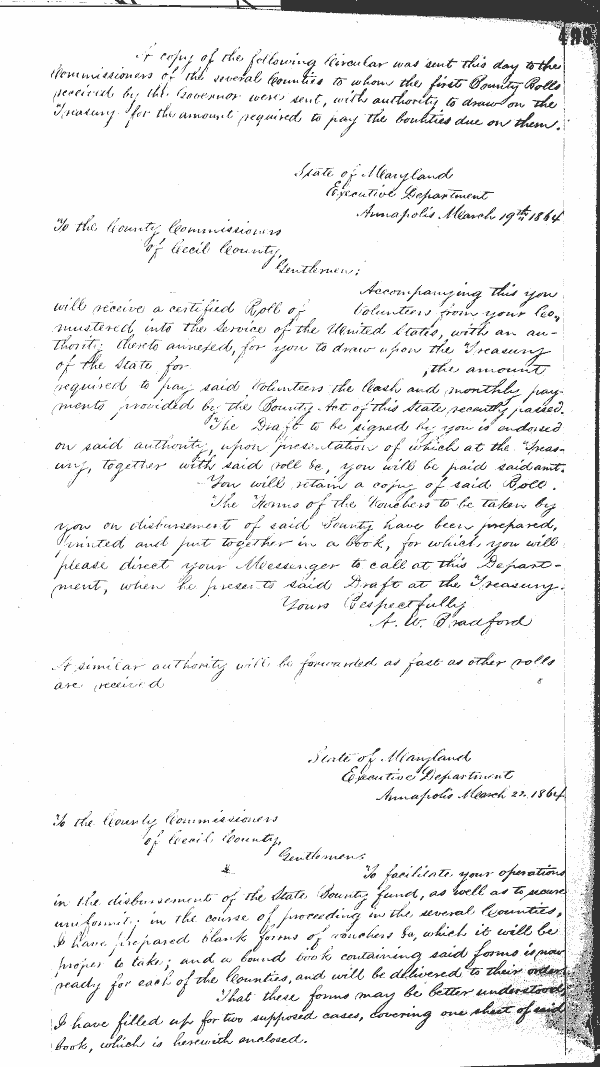 498
A copy of the following Circular was sent this day to the
Commissioners of the several Counties to whom the first County Rolls
received by the Governor were sent, with authority to draw on the
Treasury for the amount required to pay the bounties due on them.
State of Maryland
Executive Department
Annapolis March 19th 1864
To the County Commissioners
of Cecil County,
Gentlemen:
Accompanying this you
will receive a certified Roll of Volunteers from your Co,
mustered into the Service of the United States, with an au-
thority thereto annexed, for you to draw upon the Treasury
of the State for , the amount
required to pay said Volunteers the Cash and monthly pay-
ments provided by the Bounty Act of this State recently passed.
The Draft to be signed by you is endorsed
on said authority, upon presentation of which at the Treas-
ury, together with said roll &c, you will be paid said amt.
You will retain a copy of said Roll.
The Forms of the Vouchers to be taken by
you on disbursement of said Bounty have been prepared,
printed and put together in a book, for which you will
please direct your Messenger to call at this Depart-
ment, when he presents said Draft at the Treasury.
Yours Respectfully
A. W. Bradford
A similar authority will be forwarded as fast as other rolls
are received
State of Maryland
Executive Department
Annapolis March 22. 1864
To the County Commissioners
of Cecil County,
Gentlemen:
To facilitate your operations
in the disbursement of the State Bounty fund, as well as to secure
uniformity in the course of proceeding in the several Counties,
I have prepared blank forms of vouchers &c, which it will be
proper to take; and a bound book containing said forms is now
ready for each of the Counties, and will be delivered to their order.
That these forms may be better understood,
I have filled up for two supposed cases, covering one sheet of said
book, which is herewith enclosed.